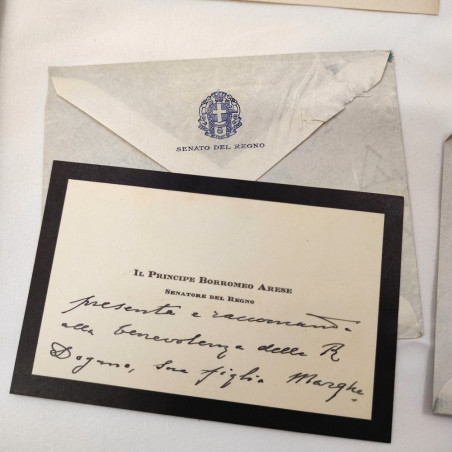 SENATO DEL REGNO
IL PRINCIPE BORROMEO ARESE
SENATORE DEL REGNO
presenta e raccomanda
alla benevolenza della R
Dogana, sua figlia Marghe